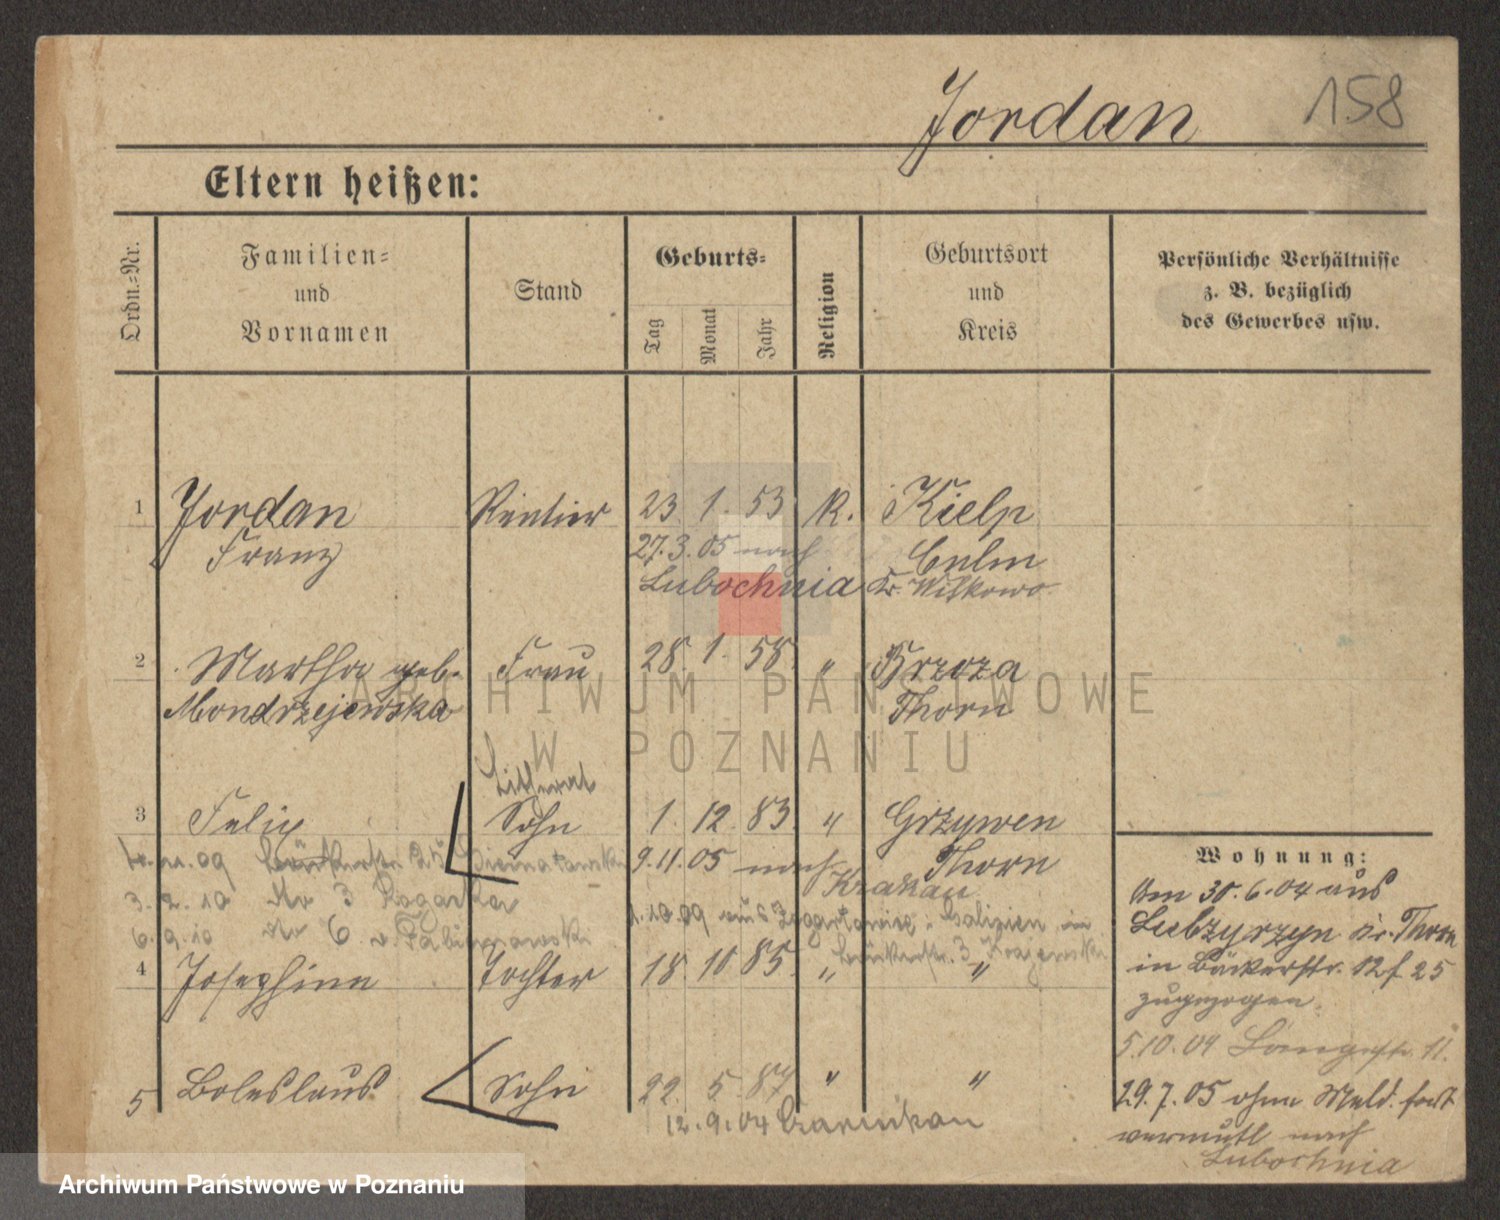 Jordan 158
Eltern heißen:
Ordn.-Nr.
Familien-
und
Vornamen
Stand
Geburts-
Tag
Monat
Jahr
Religion
Geburtsort
und
Kreis
Persönliche Verhältnisse
z. B. bezüglich
des Gewerbes usw.
1 Jordan Rentier 23. 1. 53 K. Kielp
Franz 27.3.05 nach Culm
Lubochnia Kr. Witkowo
2 Martha geb. Frau 28. 1. 58 " Brzoza
Mondrzejewska Thorn
Litterat
3 Felix Sohn 1. 12. 83. " Grzywen
09 9.11.05 nach Thorn
Krakau
3. 2. 10 Nr 3
1.10.09 aus Galizien in
6. 9. 10 Nr 6
Bäckerstr. 3
4 Josephine Tochter 18. 10 85. " "
5 Boleslaus Sohn 22. 5. 87 " "
12.9.04 Czarnikau
Wohnung:
Am 30.6.04 aus
Lubzyrzyn Kr. Thorn
in Bäckerstr. 12 f. 25
zugezogen.
5.10.04 Langestr. 11.
29.7.05 ohne Meld. fort
vermutl nach
Lubochnia
ARCHIWUM PAŃSTWOWE
W POZNANIU
Archiwum Państwowe w Poznaniu